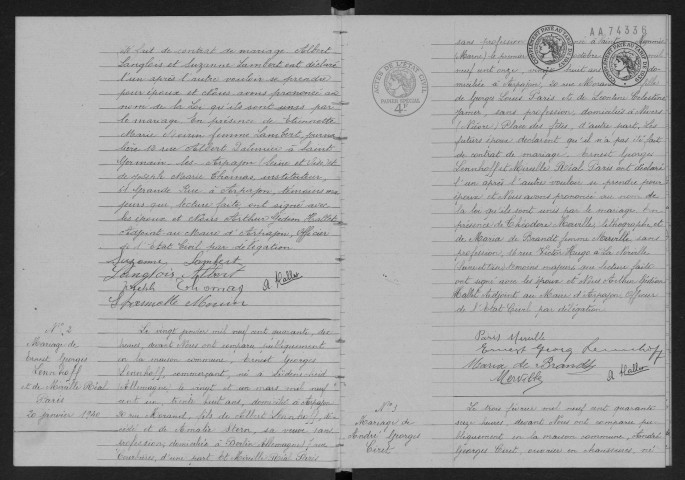 de Lut de contrat de mariage Albert
Langlois et Suzanne Lambert ont déclaré
l'un après l'autre vouloir se prendre
pour époux et Nous avons prononcé au
nom de la Loi qu'ils sont unis par
le mariage En présence de Etiennette
Marie femme Lambert
13 rue Albert à Saint
Germain les Arpajon (Seine et Oise) et
de Joseph Marie Thomas, instituteur,
Grande Rue à Arpajon, témoins ma
jeurs qui, lecture faite, ont signé avec
les époux et Nous Arthur Gédéon Hallot
Adjoint au Maire d'Arpajon, Officier
de l'Etat Civil par délégation
Suzanne Lambert
Langlois Albert
Joseph Thomas A Hallot
N° 2
Mariage de
Ernest Georges
et de Mireille Réal
Paris
20 janvier 1940
Le vingt janvier mil neuf cent quarante, dix
heures, devant Nous ont comparu publiquement
en la maison commune, Ernest Georges
commerçant, né à
(Allemagne) le vingt et un mars mil neuf
cent un, trente huit ans, domicilié à Arpajon
rue Morand, fils de Albert
et de Amalie Stern, sa veuve sans
profession, domiciliée à Berlin (Allemagne)
d'une part Et Mireille Réal Paris
AA74336
ACTES DE L'ETAT CIVIL
PAPIER SPECIAL
4F
sans profession née à Saint
(Marne) le premier octobre mil
neuf cent onze, vingt huit ans
domiciliée à Arpajon, 20 rue Morand, fille
de Georges Paris et de Léontine Célestine
sans profession, domiciliés à Nevers
(Nièvre) Place des fêtes, d'autre part. Les
futurs époux déclarent qu'il n'a pas été fait
de contrat de mariage. Ernest Georges
et Mireille Réal Paris ont déclaré
l'un après l'autre vouloir se prendre pour
époux et Nous avons prononcé au nom de
la Loi qu'ils sont unis par le mariage En
présence de Théodore Merville, lithographe, et
de Maria de Brandt femme Merville sans
profession, 18 rue Victor Hugo à La Norville
(Seine et Oise) témoins majeurs qui lecture faite
ont signé avec les époux et Nous Arthur Gédéon
Hallot Adjoint au Maire d'Arpajon Officier
de l'Etat Civil par délégation.
Paris Mireille
Ernest Georg
Maria de Brandt
Merville A Hallot
N° 3
Mariage de
André Georges
Ciret
Le trois février mil neuf cent quarante
heures, devant Nous ont comparu pu
bliquement en la maison commune, André
Georges Ciret, ouvrier en chaussures, né